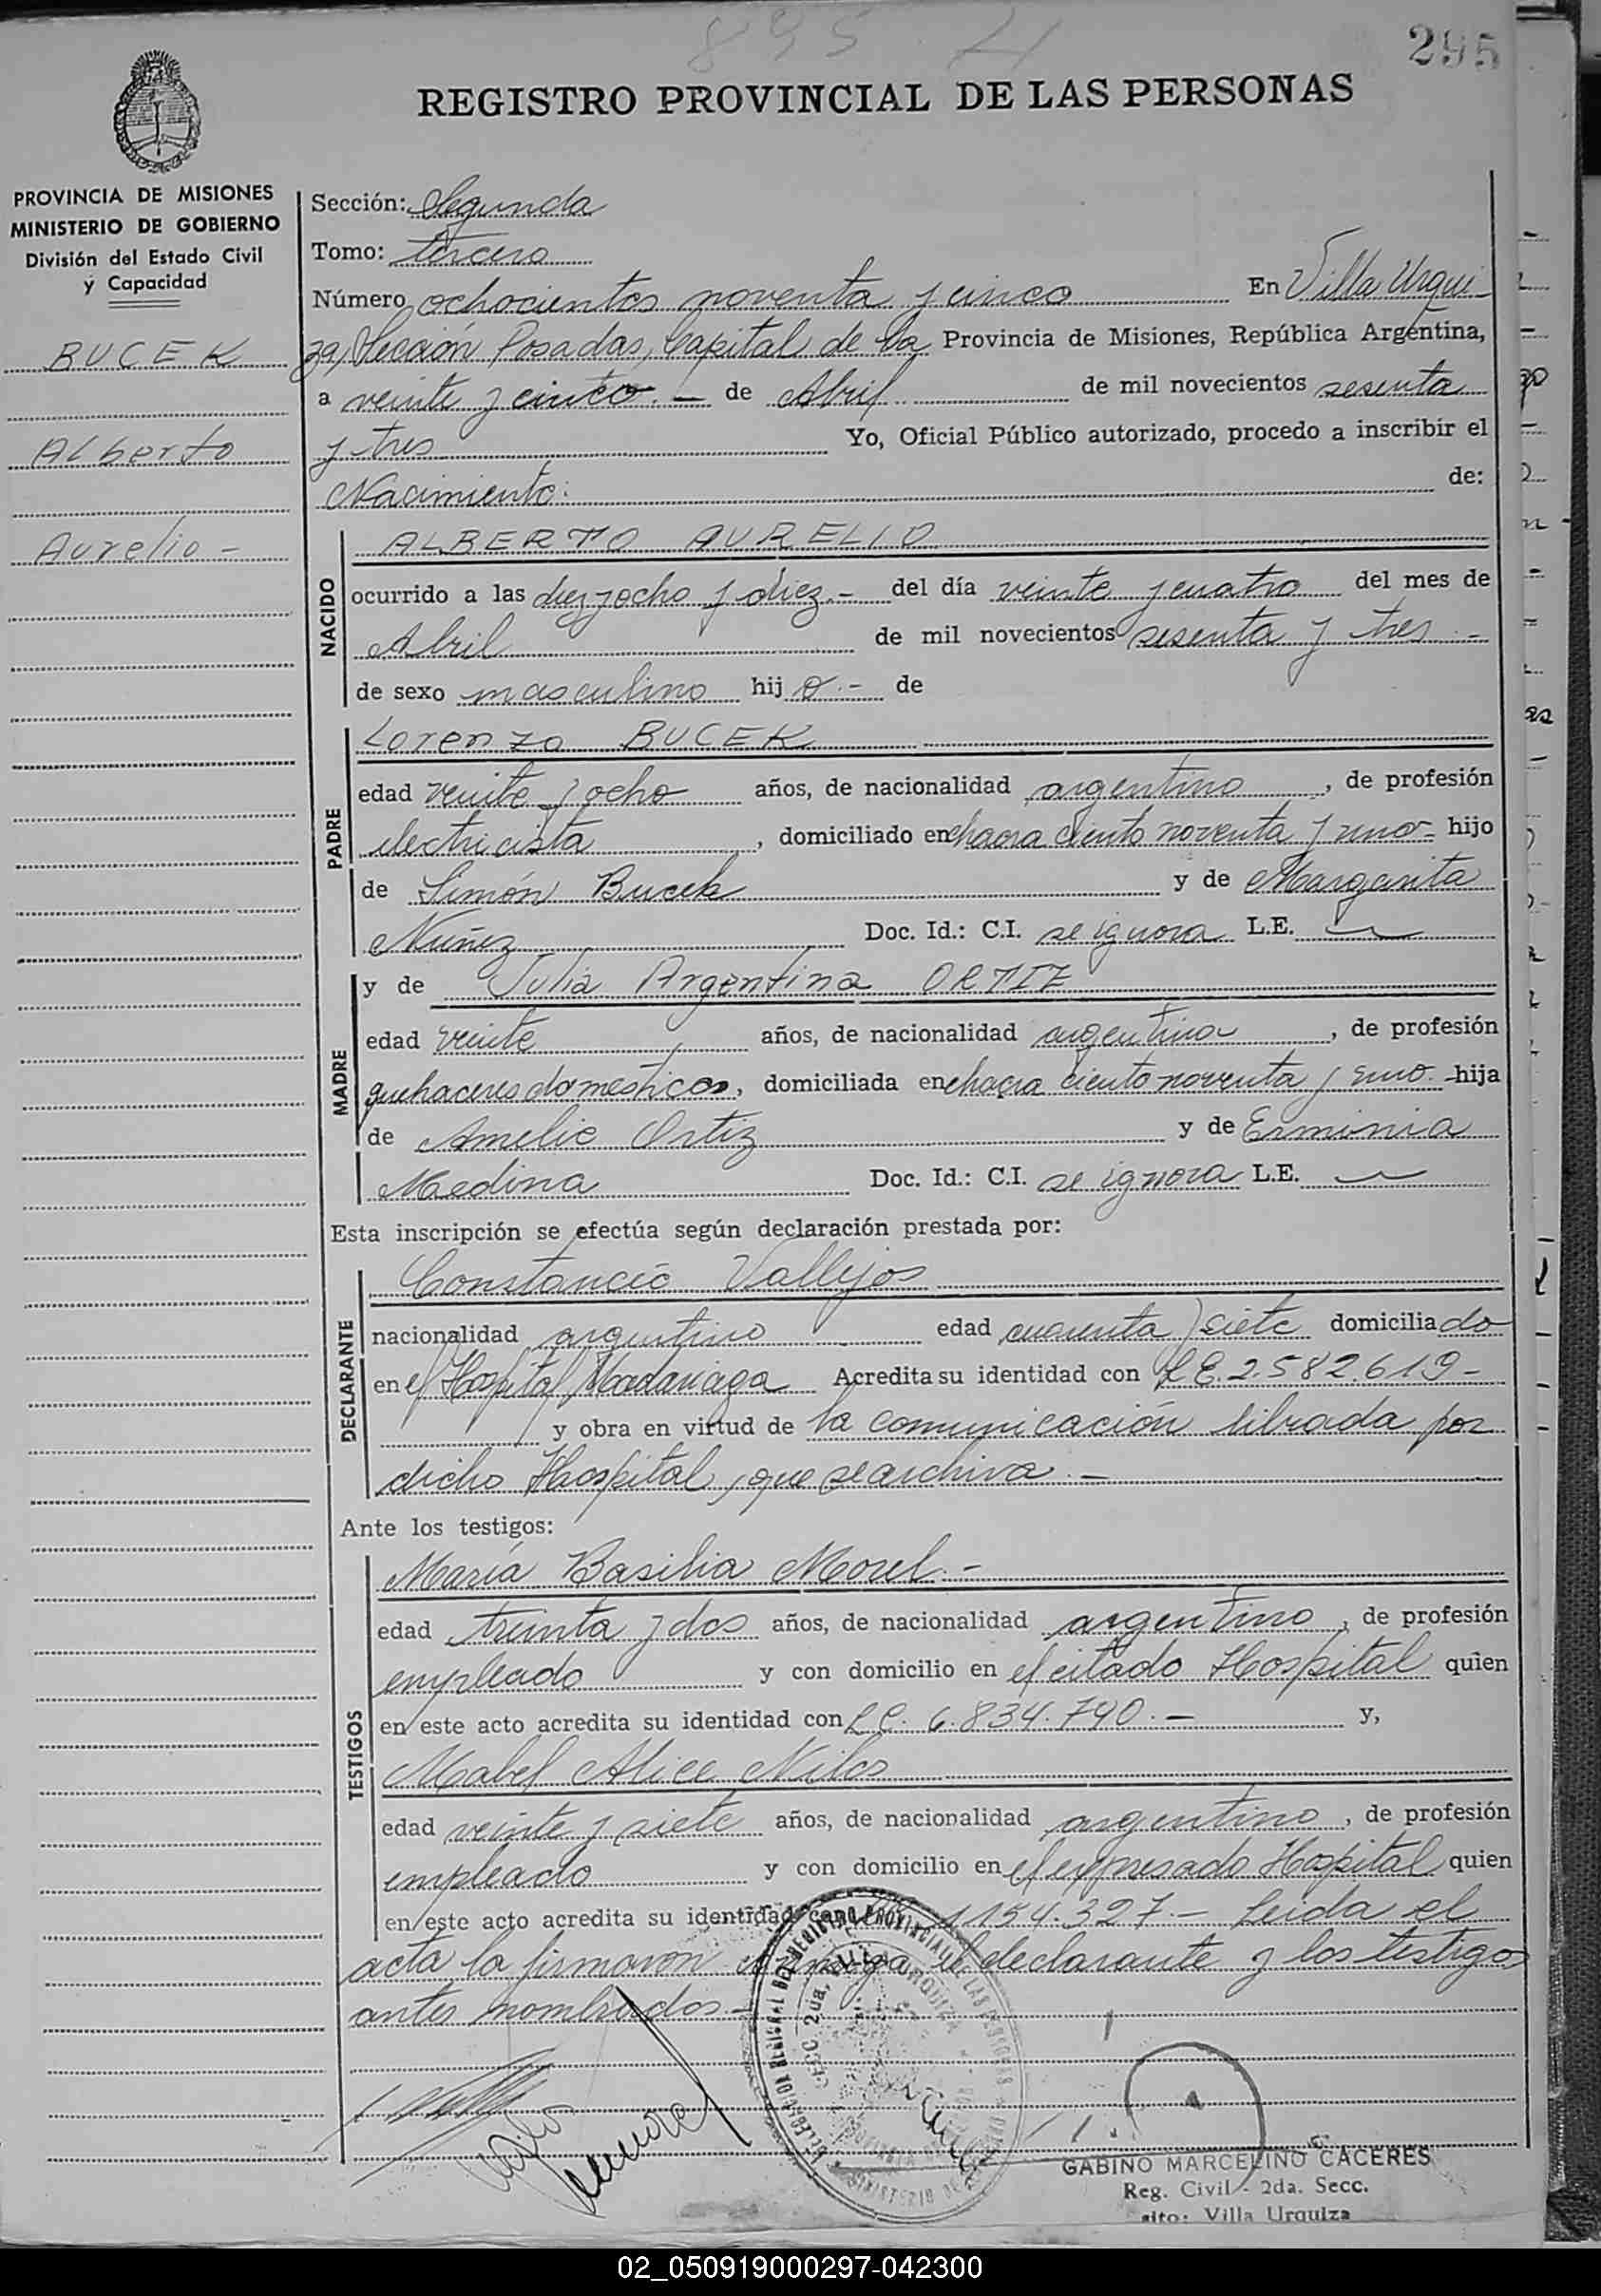 895
295
REGISTRO PROVINCIAL DE LAS PERSONAS
PROVINCIA DE MISIONES
MINISTERIO DE GOBIERNO
División del Estado Civil
y Capacidad
BUCEK
Alberto
Aurelio -
Sección: Segunda
Tomo: tercero
Número ochocientos noventa y cinco En Villa Urqui-
za, Sección Posadas, Capital de la Provincia de Misiones, República Argentina,
a veinte y cinco. - de Abril de mil novecientos sesenta
y tres Yo, Oficial Público autorizado, procedo a inscribir el
Nacimiento: de:
NACIDO
ALBERTO AURELIO
ocurrido a las diez y ocho y diez.- del día veinte y cuatro del mes de
Abril de mil novecientos sesenta y tres.-
de sexo masculino hij o.- de
PADRE
Lorenzo BUCEK
edad veinte y ocho años, de nacionalidad argentino, de profesión
electricista, domiciliado en chacra ciento noventa y uno- hijo
de Simón Bucek y de Margarita
Nuñez Doc. Id.: C.I. se ignora L.E.
MADRE
y de Julia Argentina ORTIZ
edad veinte años, de nacionalidad argentina, de profesión
quehaceres domésticos, domiciliada en chacra ciento noventa y uno.- hija
de Amelio Ortiz y de Erminia
Medina Doc. Id.: C.I. se ignora L.E.
Esta inscripción se efectúa según declaración prestada por:
DECLARANTE
Constancio Vallejos
nacionalidad argentino edad cuarenta y siete domiciliado
en el Hospital Madariaga Acredita su identidad con L.E. 2.582.619-
y obra en virtud de la comunicación librada por
dicho Hospital, que se archiva.-
Ante los testigos:
TESTIGOS
María Basilia Morel.-
edad treinta y dos años, de nacionalidad argentino, de profesión
empleado y con domicilio en el citado Hospital quien
en este acto acredita su identidad con L.C. 6.834.790.- y,
Mabel Alice Niles
edad veinte y siete años, de nacionalidad argentino, de profesión
empleado y con domicilio en el expresado Hospital quien
en este acto acredita su identidad con 1154.327.- Leida el
acta la firmaron conmigo el declarante y los testigos
antes nombrados.-
DELEGACION REGIONAL DEL REGISTRO PROVINCIAL DE LAS PERSONAS
SECC 2da, VILLA URQUIZA
GABINO MARCELINO CACERES
Reg. Civil - 2da. Secc.
Villa Urquiza
02_050919000297-042300